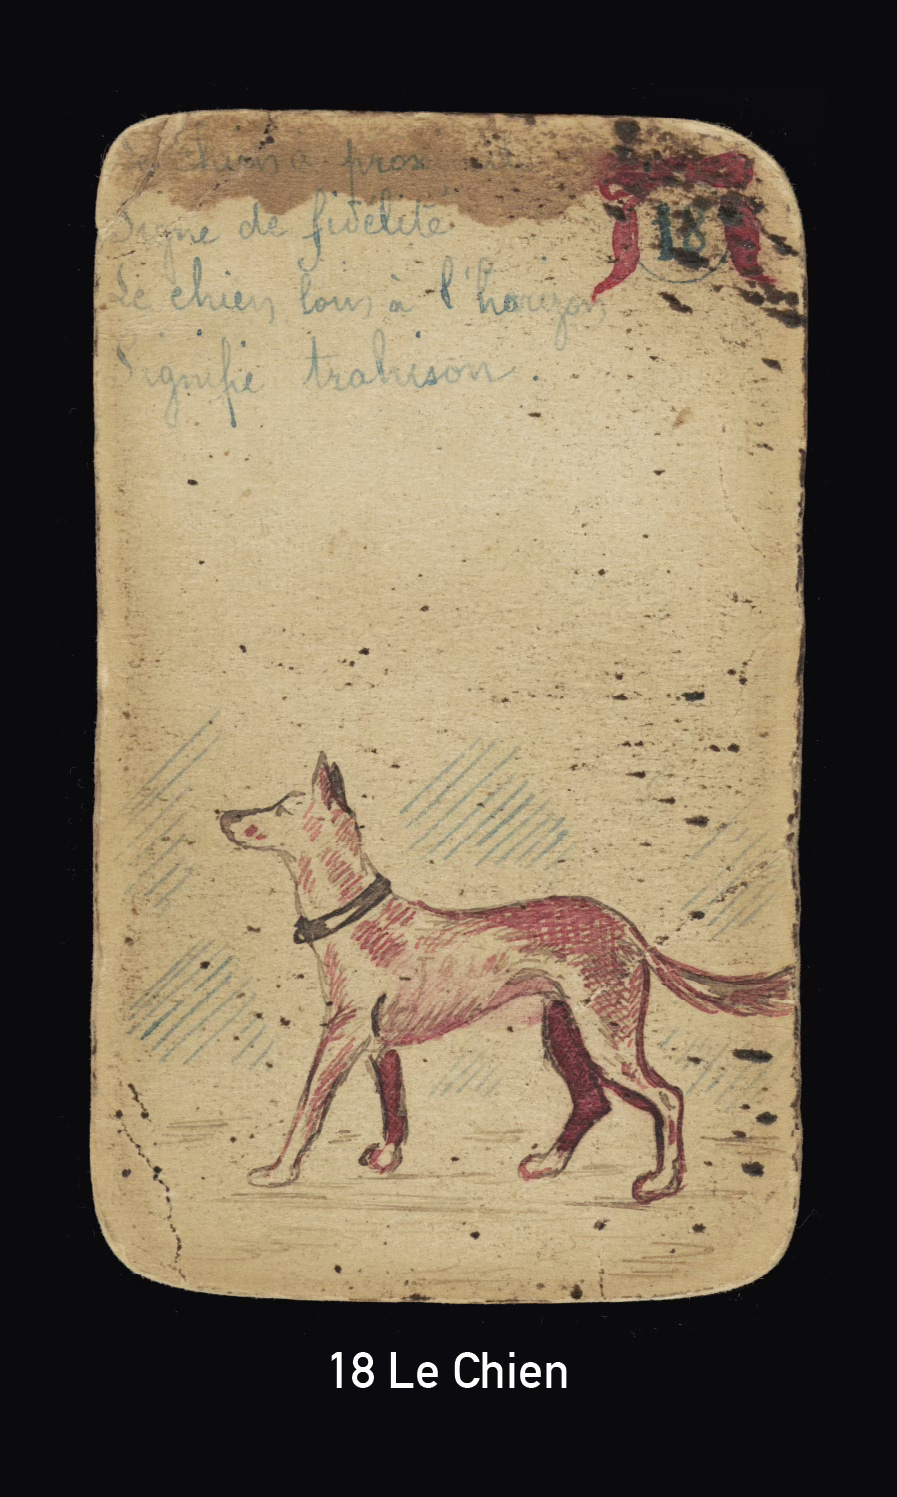 Le chien à proximité
18
Signe de fidélité
Le chien loin à l'horizon
Signifie trahison.
18 Le Chien